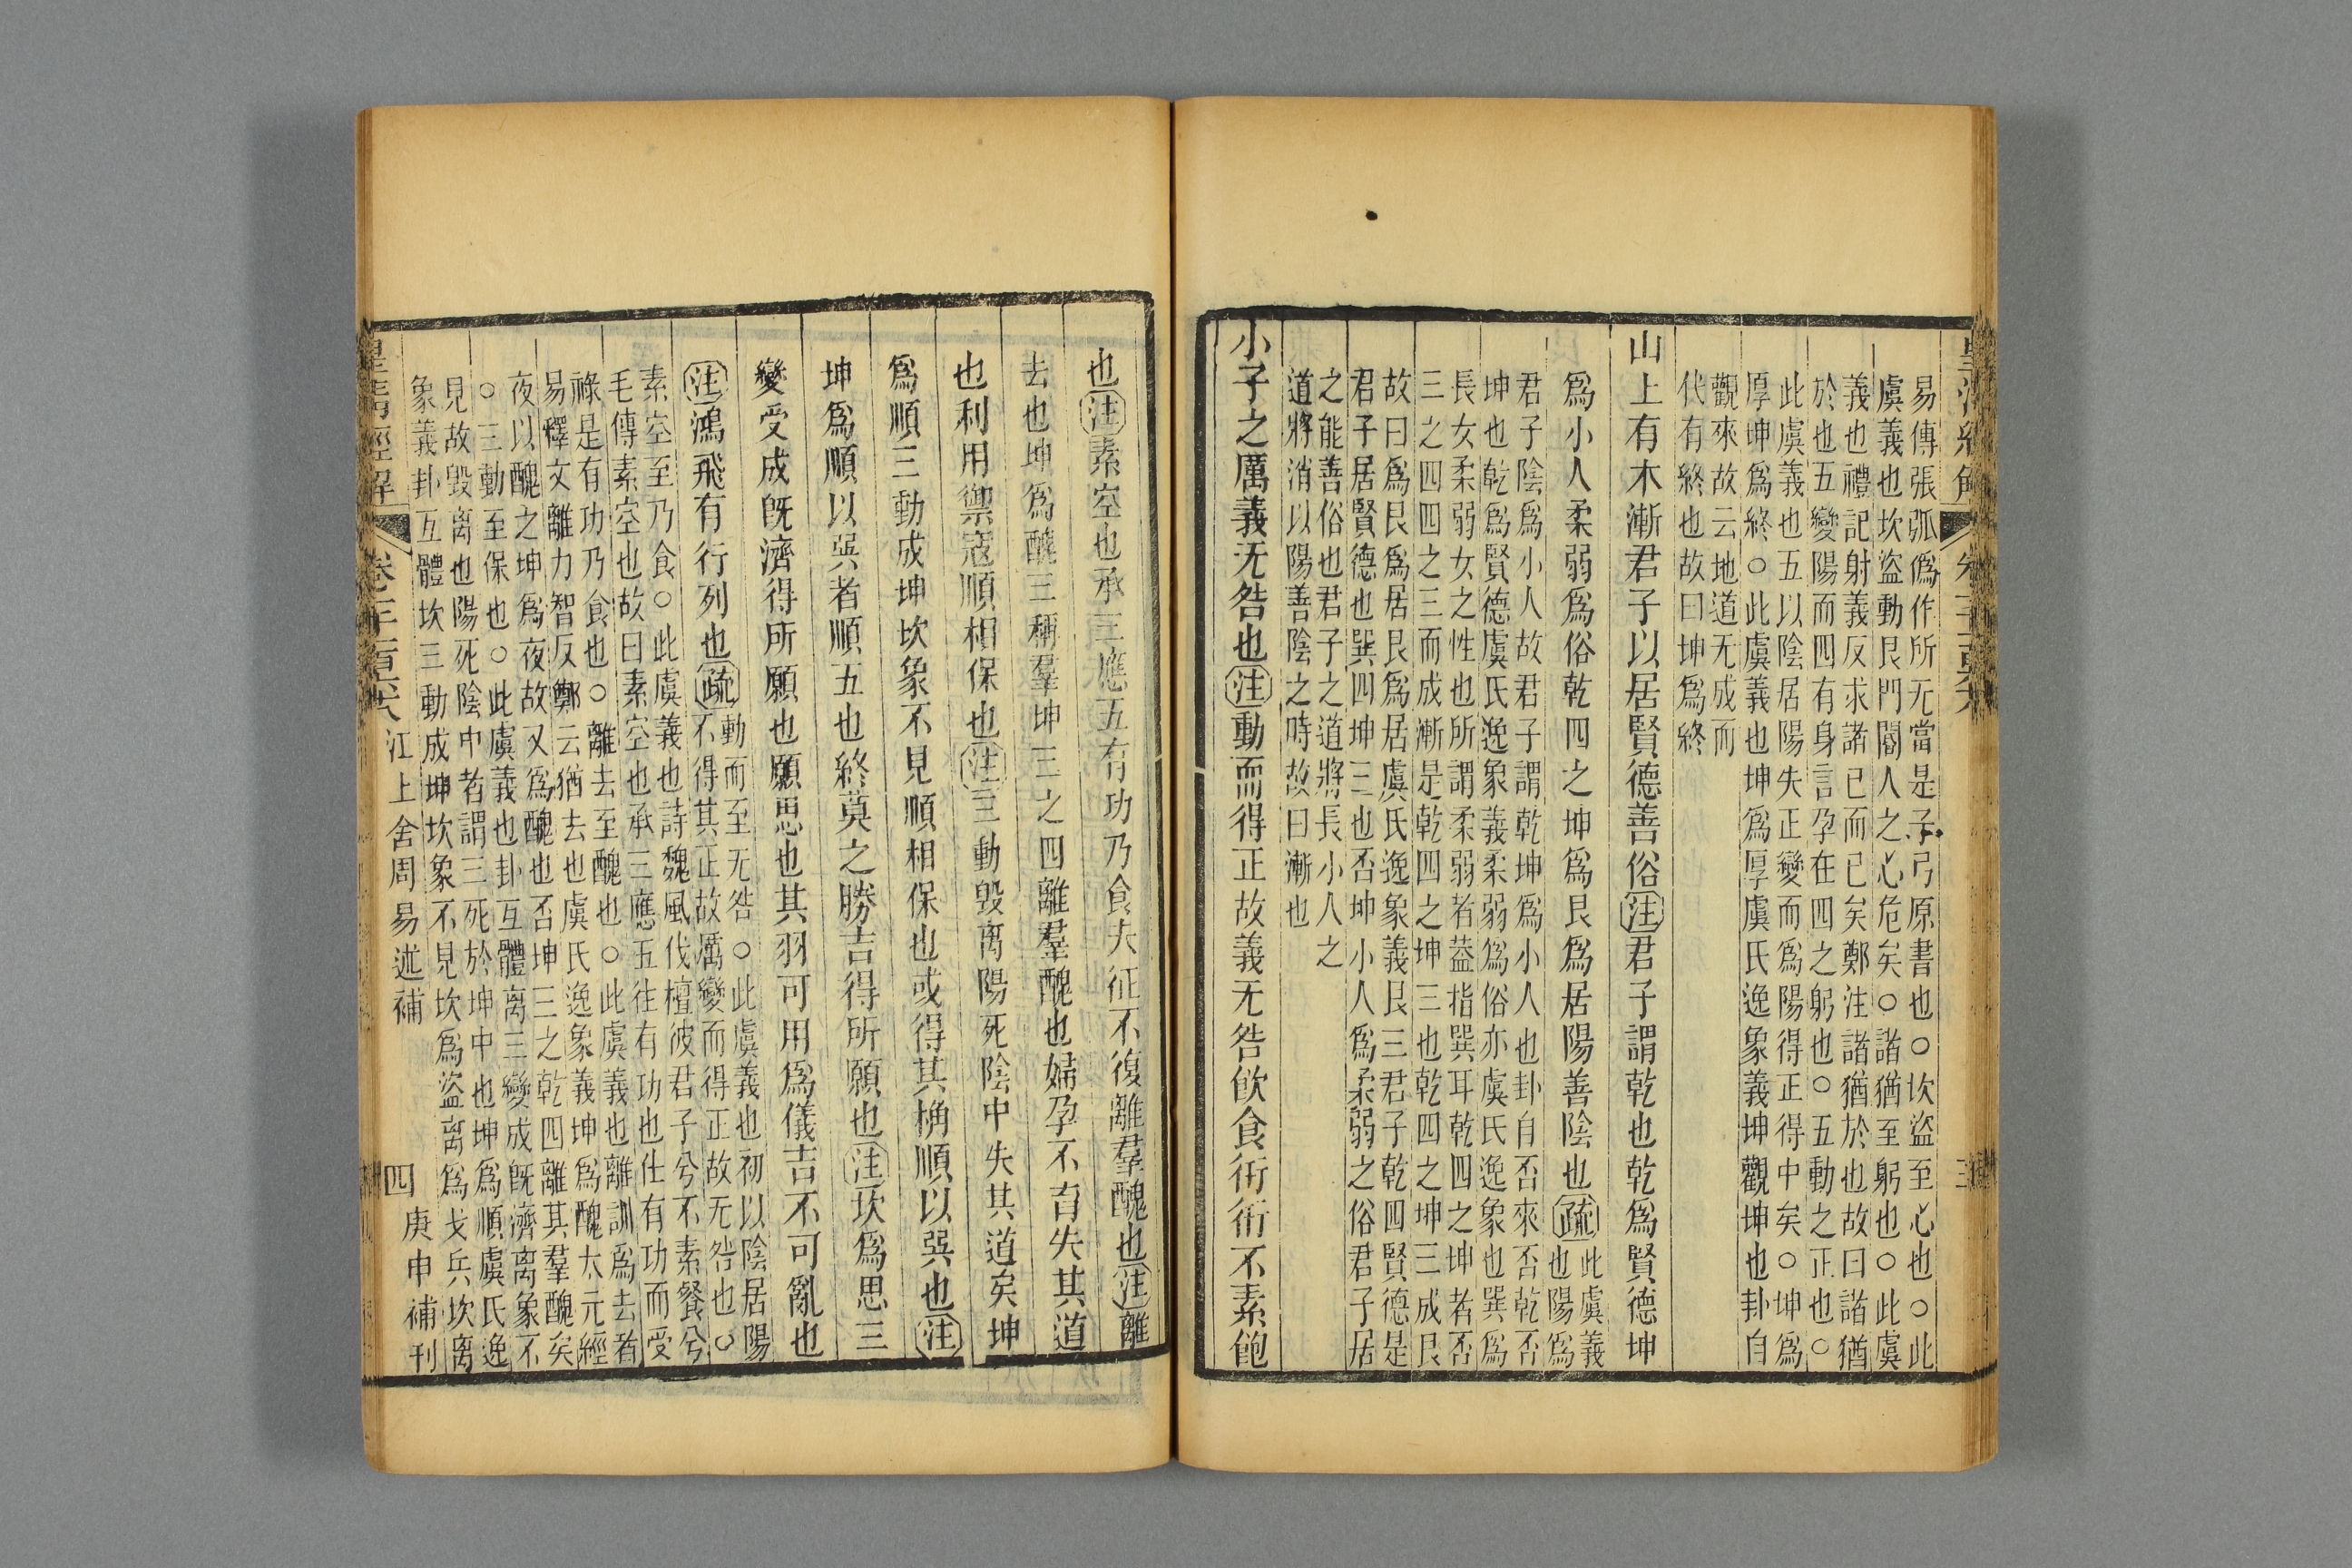 易傳張弧僞作所无當是子弓原書也○坎盜至心也○此
虞義也坎盜動艮門閽人之心危矣○諸猶至躬也○此虞
義也禮記射義反求諸己而已矣鄭注諸猶於也故曰諸猶
於也五變陽而四有身言孕在四之躬也○五動之正也○
此虞義也五以陰居陽失正變而爲陽得正得中矣○坤爲
厚坤爲終○此虞義也坤爲厚虞氏逸象義坤觀坤也卦自
觀來故云地道无成而
代有終也故曰坤爲終
山上有木漸君子以居賢德善俗注君子謂乾也乾爲賢德坤
爲小人柔弱爲俗乾四之坤爲艮爲居陽善陰也疏此虞義
也陽爲
君子陰爲小人故君子謂乾坤爲小人也卦自否來否乾否
坤也乾爲賢德虞氏逸象義柔弱爲俗亦虞氏逸象也巽爲
長女柔弱女之性也所謂柔弱者葢指巽耳乾四之坤者否
三之四四之三而成漸是乾四之坤三也乾四之坤三成艮
故曰爲艮爲居艮爲居虞氏逸象義艮三君子乾四賢德是
君子居賢德也巽四坤三也否坤小人爲柔弱之俗君子居
之能善俗也君子之道將長小人之
道將消以陽善陰之時故曰漸也
小子之厲義无咎也注動而得正故義无咎飮食衎衎不素飽
也注素空也承三應五有功乃食夫征不復離羣醜也注離
去也坤爲醜三稱羣坤三之四離羣醜也婦孕不育失其道
也利用禦寇順相保也注三動毀离陽死陰中失其道矣坤
爲順三動成坤坎象不見順相保也或得其桷順以巽也注
坤爲順以巽者順五也終莫之勝吉得所願也注坎爲思三
變受成旣濟得所願也願思也其羽可用爲儀吉不可亂也
注鴻飛有行列也疏動而至无咎○此虞義也初以陰居陽
不得其正故厲變而得正故无咎也○
素空至乃食○此虞義也詩魏風伐檀彼君子兮不素餐兮
毛傳素空也故曰素空也承三應五往有功也仕有功而受
祿是有功乃食也○離去至醜也○此虞義也離訓爲去者
易釋文離力智反鄭云猶去也虞氏逸象義坤爲醜太元經
夜以醜之坤爲夜故又爲醜也否坤三之乾四離其羣醜矣
○三動至保也○此虞義也卦互體离三變成旣濟离象不
見故毀离也陽死陰中者謂三死於坤中也坤爲順虞氏逸
象義卦互體坎三動成坤坎象不見坎爲盜离爲戈兵坎离
江上舍周易述補
四
庚申補刊